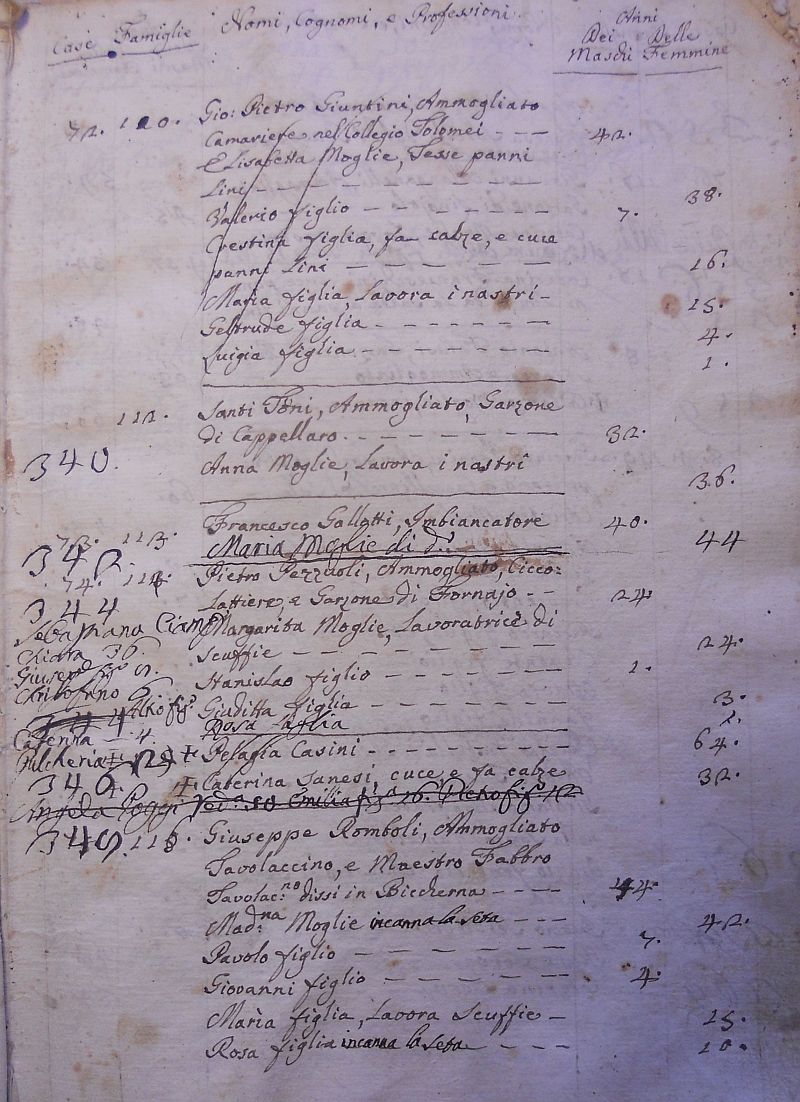 Case Famiglie Nomi, Cognomi, e Professioni. Anni
Dei Maschi Delle Femmine
72. 110. Gio: Pietro Giuntini, Ammogliato
Camariere nel Collegio Tolomei - - - 42.
Elisabetta Moglie, Tesse panni
Lini - - - - - - - - 38.
Valerio figlio - - - - - - 7.
Crestina figlia, fa calze, e cuce
panni Lini - - - - - - 16.
Maria figlia, Lavora i nastri - 15.
Geltrude figlia - - - - - - 4.
Luigia figlia - - - - - - 1.
112. Santi Toni, Ammogliato, Garzone
di Cappellaro. - - - - - - 32.
340. Anna Moglie, Lavora i nastri 36.
73. 113. Francesco Gallotti, Imbiancatore 40.
342. Maria Moglie di d.º 44
74. 114. Pietro Pezzuoli, Ammogliato, Cicco=
344 Lattiere, e Garzone di Fornajo - - 24.
Margarita Moglie, Lavoratrice di
Chiara 36. scuffie - - - - - - - 24.
Stanislao figlio - - - - - 1.
Giuditta figlia - - - - - - 3.
Rosa figlia 2.
Caterina 4. Pelagia Casini - - - - - - - - - 64.
346 Caterina Sanesi, cuce, e fa calze 32.
Angela Poggi ved.ª 50 Emilia fig.ª 16. Pietro fig.º 12
348. 116. Giuseppe Romboli, Ammogliato
Tavolaccino, e Maestro Fabbro
Tavolac:no dissi in Biccherna - - - - 44.
Mad.na Moglie incanna la seta - - - 42.
Pavolo figlio - - - - - - 7.
Giovanni figlio - - - - - 4.
Maria figlia, Lavora scuffie - 15.
Rosa figlia incanna la seta - - - - 10.